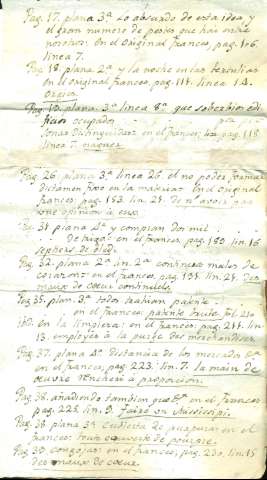 Pag. 17. plana 3ª Lo absurdo de esta idea, y
el gran numero de pesos que hai entre
nosotros. En el original frances, pag. 106
linea 7.
Pag. 18. plana 2ª y la noche en las
en el original frances, pag. 111. linea 14.
orgies
Pag. 19. plana 3ª linea 8ª que soberbios edi
ficios ocupados
sonas distinguidas en el frances, pag. 118
linea 7.
Pag. 26. plana 3ª linea 26 el no poder formar
dictamen fixo en la materia. En el original
frances pag. 153. lin. 21. de n'avoir pas
une opinion à eux.
Pag. 31 plana 4ª y compran dos mil
de trigo: en el frances, pag. 180. lin. 16
septiers de bled.
Pag. 32. plana 2ª lin. 2ª continuos males de
corazon: en el frances, pag. 191. lin. 21. des
maux de coeur continuels.
Pag. 35. plan. 3ª todos pagan patente
en el frances: patente brute
en la limpieza: en el frances: pag. 211. lin.
13. employés à la purge des marchandises.
Pag. 37. plana 4ª distancia de los mercados
en el frances, pag. 223. lin. 7. la main de
oeuvre rencherit à proportion.
Pag. 38. añadiendo tambien en el frances
pag. 225. lin. 9. faire un Mississipi.
Pag. 38. plana 3ª cubierta de purpura: en el
frances: toute couverte de pourpre.
Pag. 39. congojas: en el frances, pag. 230. lin. 15
des maux de coeur.